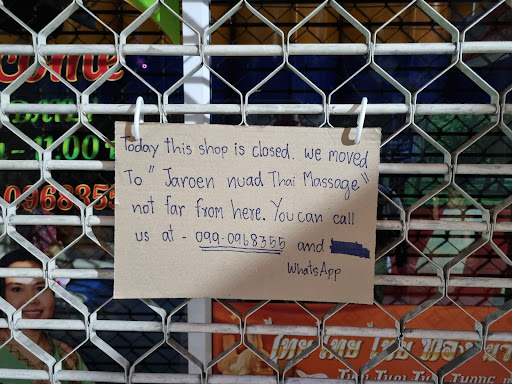 Today this shop is closed. we moved
To " Jaroen nuad Thai Massage"
not far from here. You can call
us at - 099-0968355 and
WhatsApp
11.00
096835
ไทย ไทย ไทย